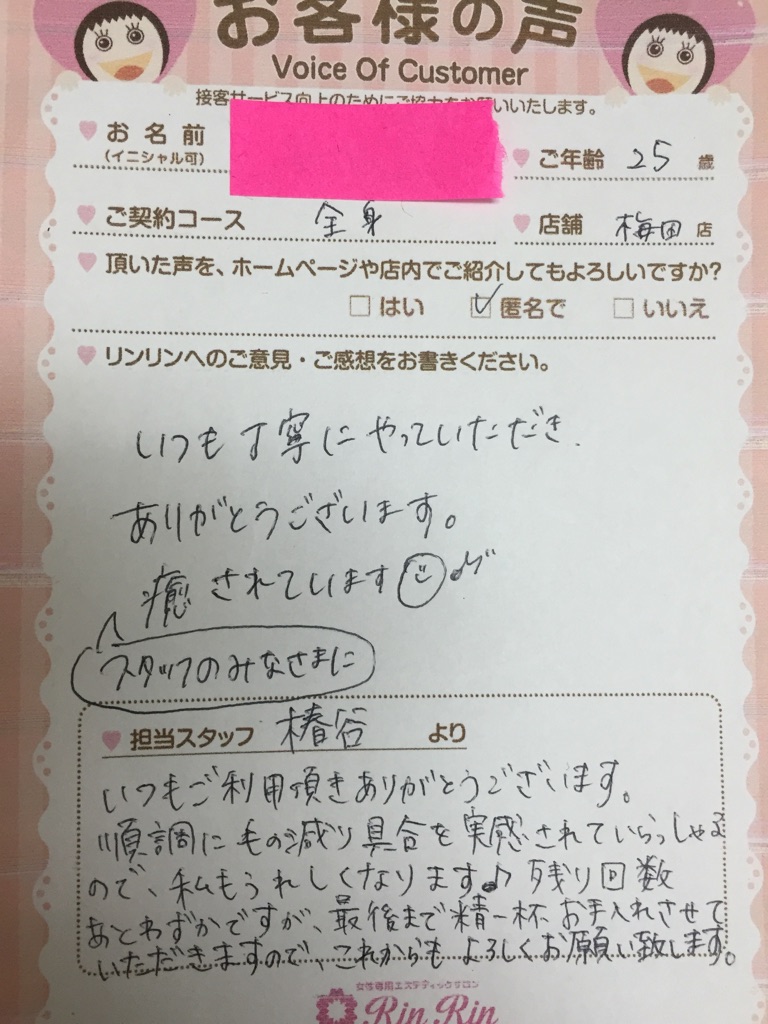 お客様の声
Voice Of Customer
接客サービス向上のためにご協力をお願いいたします。
お名前
(イニシャル可)
ご年齢 25 歳
ご契約コース 全身
店舗 梅田 店
頂いた声を、ホームページや店内でご紹介してもよろしいですか?
□はい ☑匿名で □いいえ
リンリンへのご意見・ご感想をお書きください。
いつも丁寧にやっていただき、
ありがとうございます。
癒されています☺♪
スタッフのみなさまに
担当スタッフ 椿谷 より
いつもご利用頂きありがとうございます。
順調に毛の減り具合を実感されていらっしゃる
ので、私もうれしくなります♪ 残り回数
あとわずかですが、最後まで精一杯お手入れさせて
いただきますので、これからもよろしくお願い致します。
女性専用エステティックサロン
Rin Rin